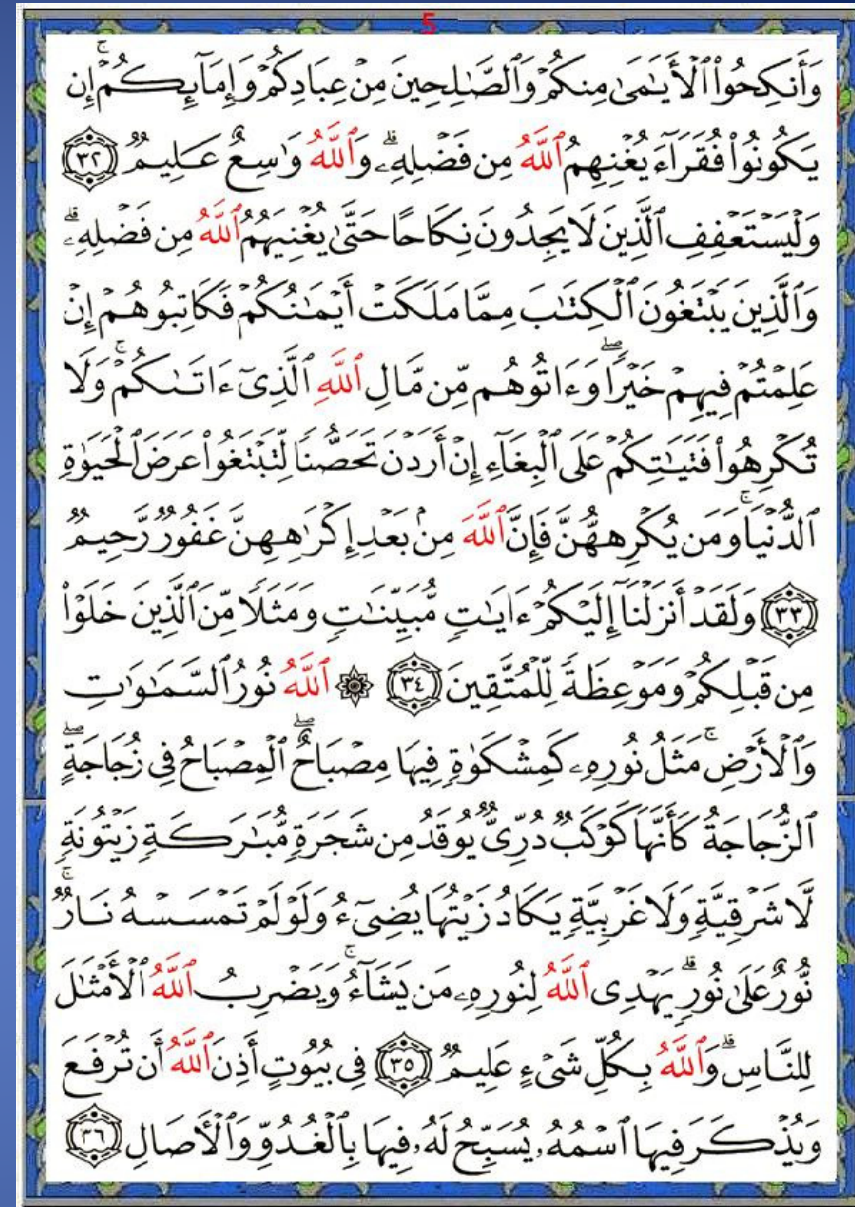 5
وَأَنكِحُوا۟ ٱلْأَيَـٰمَىٰ مِنكُمْ وَٱلصَّـٰلِحِينَ مِنْ عِبَادِكُمْ وَإِمَآئِكُمْ ۚ إِن
يَكُونُوا۟ فُقَرَآءَ يُغْنِهِمُ ٱللَّهُ مِن فَضْلِهِۦ ۗ وَٱللَّهُ وَٰسِعٌ عَلِيمٌ ٣٢
وَلْيَسْتَعْفِفِ ٱلَّذِينَ لَا يَجِدُونَ نِكَاحًا حَتَّىٰ يُغْنِيَهُمُ ٱللَّهُ مِن فَضْلِهِۦ ۗ
وَٱلَّذِينَ يَبْتَغُونَ ٱلْكِتَـٰبَ مِمَّا مَلَكَتْ أَيْمَـٰنُكُمْ فَكَاتِبُوهُمْ إِنْ
عَلِمْتُمْ فِيهِمْ خَيْرًا ۖ وَءَاتُوهُم مِّن مَّالِ ٱللَّهِ ٱلَّذِىٓ ءَاتَىٰكُمْ ۚ وَلَا
تُكْرِهُوا۟ فَتَيَـٰتِكُمْ عَلَى ٱلْبِغَآءِ إِنْ أَرَدْنَ تَحَصُّنًا لِّتَبْتَغُوا۟ عَرَضَ ٱلْحَيَوٰةِ
ٱلدُّنْيَا ۚ وَمَن يُكْرِههُّنَّ فَإِنَّ ٱللَّهَ مِنۢ بَعْدِ إِكْرَٰهِهِنَّ غَفُورٌ رَّحِيمٌ
٣٣ وَلَقَدْ أَنزَلْنَآ إِلَيْكُمْ ءَايَـٰتٍ مُّبَيِّنَـٰتٍ وَمَثَلًا مِّنَ ٱلَّذِينَ خَلَوْا۟
مِن قَبْلِكُمْ وَمَوْعِظَةً لِّلْمُتَّقِينَ ٣٤ ۞ ٱللَّهُ نُورُ ٱلسَّمَـٰوَٰتِ
وَٱلْأَرْضِ ۚ مَثَلُ نُورِهِۦ كَمِشْكَوٰةٍ فِيهَا مِصْبَاحٌ ۖ ٱلْمِصْبَاحُ فِى زُجَاجَةٍ ۖ
ٱلزُّجَاجَةُ كَأَنَّهَا كَوْكَبٌ دُرِّىٌّ يُوقَدُ مِن شَجَرَةٍ مُّبَـٰرَكَةٍ زَيْتُونَةٍ
لَّا شَرْقِيَّةٍ وَلَا غَرْبِيَّةٍ يَكَادُ زَيْتُهَا يُضِىٓءُ وَلَوْ لَمْ تَمْسَسْهُ نَارٌ ۚ
نُّورٌ عَلَىٰ نُورٍ ۗ يَهْدِى ٱللَّهُ لِنُورِهِۦ مَن يَشَآءُ ۚ وَيَضْرِبُ ٱللَّهُ ٱلْأَمْثَـٰلَ
لِلنَّاسِ ۗ وَٱللَّهُ بِكُلِّ شَىْءٍ عَلِيمٌ ٣٥ فِى بُيُوتٍ أَذِنَ ٱللَّهُ أَن تُرْفَعَ
وَيُذْكَرَ فِيهَا ٱسْمُهُۥ يُسَبِّحُ لَهُۥ فِيهَا بِٱلْغُدُوِّ وَٱلْـَٔاصَالِ ٣٦